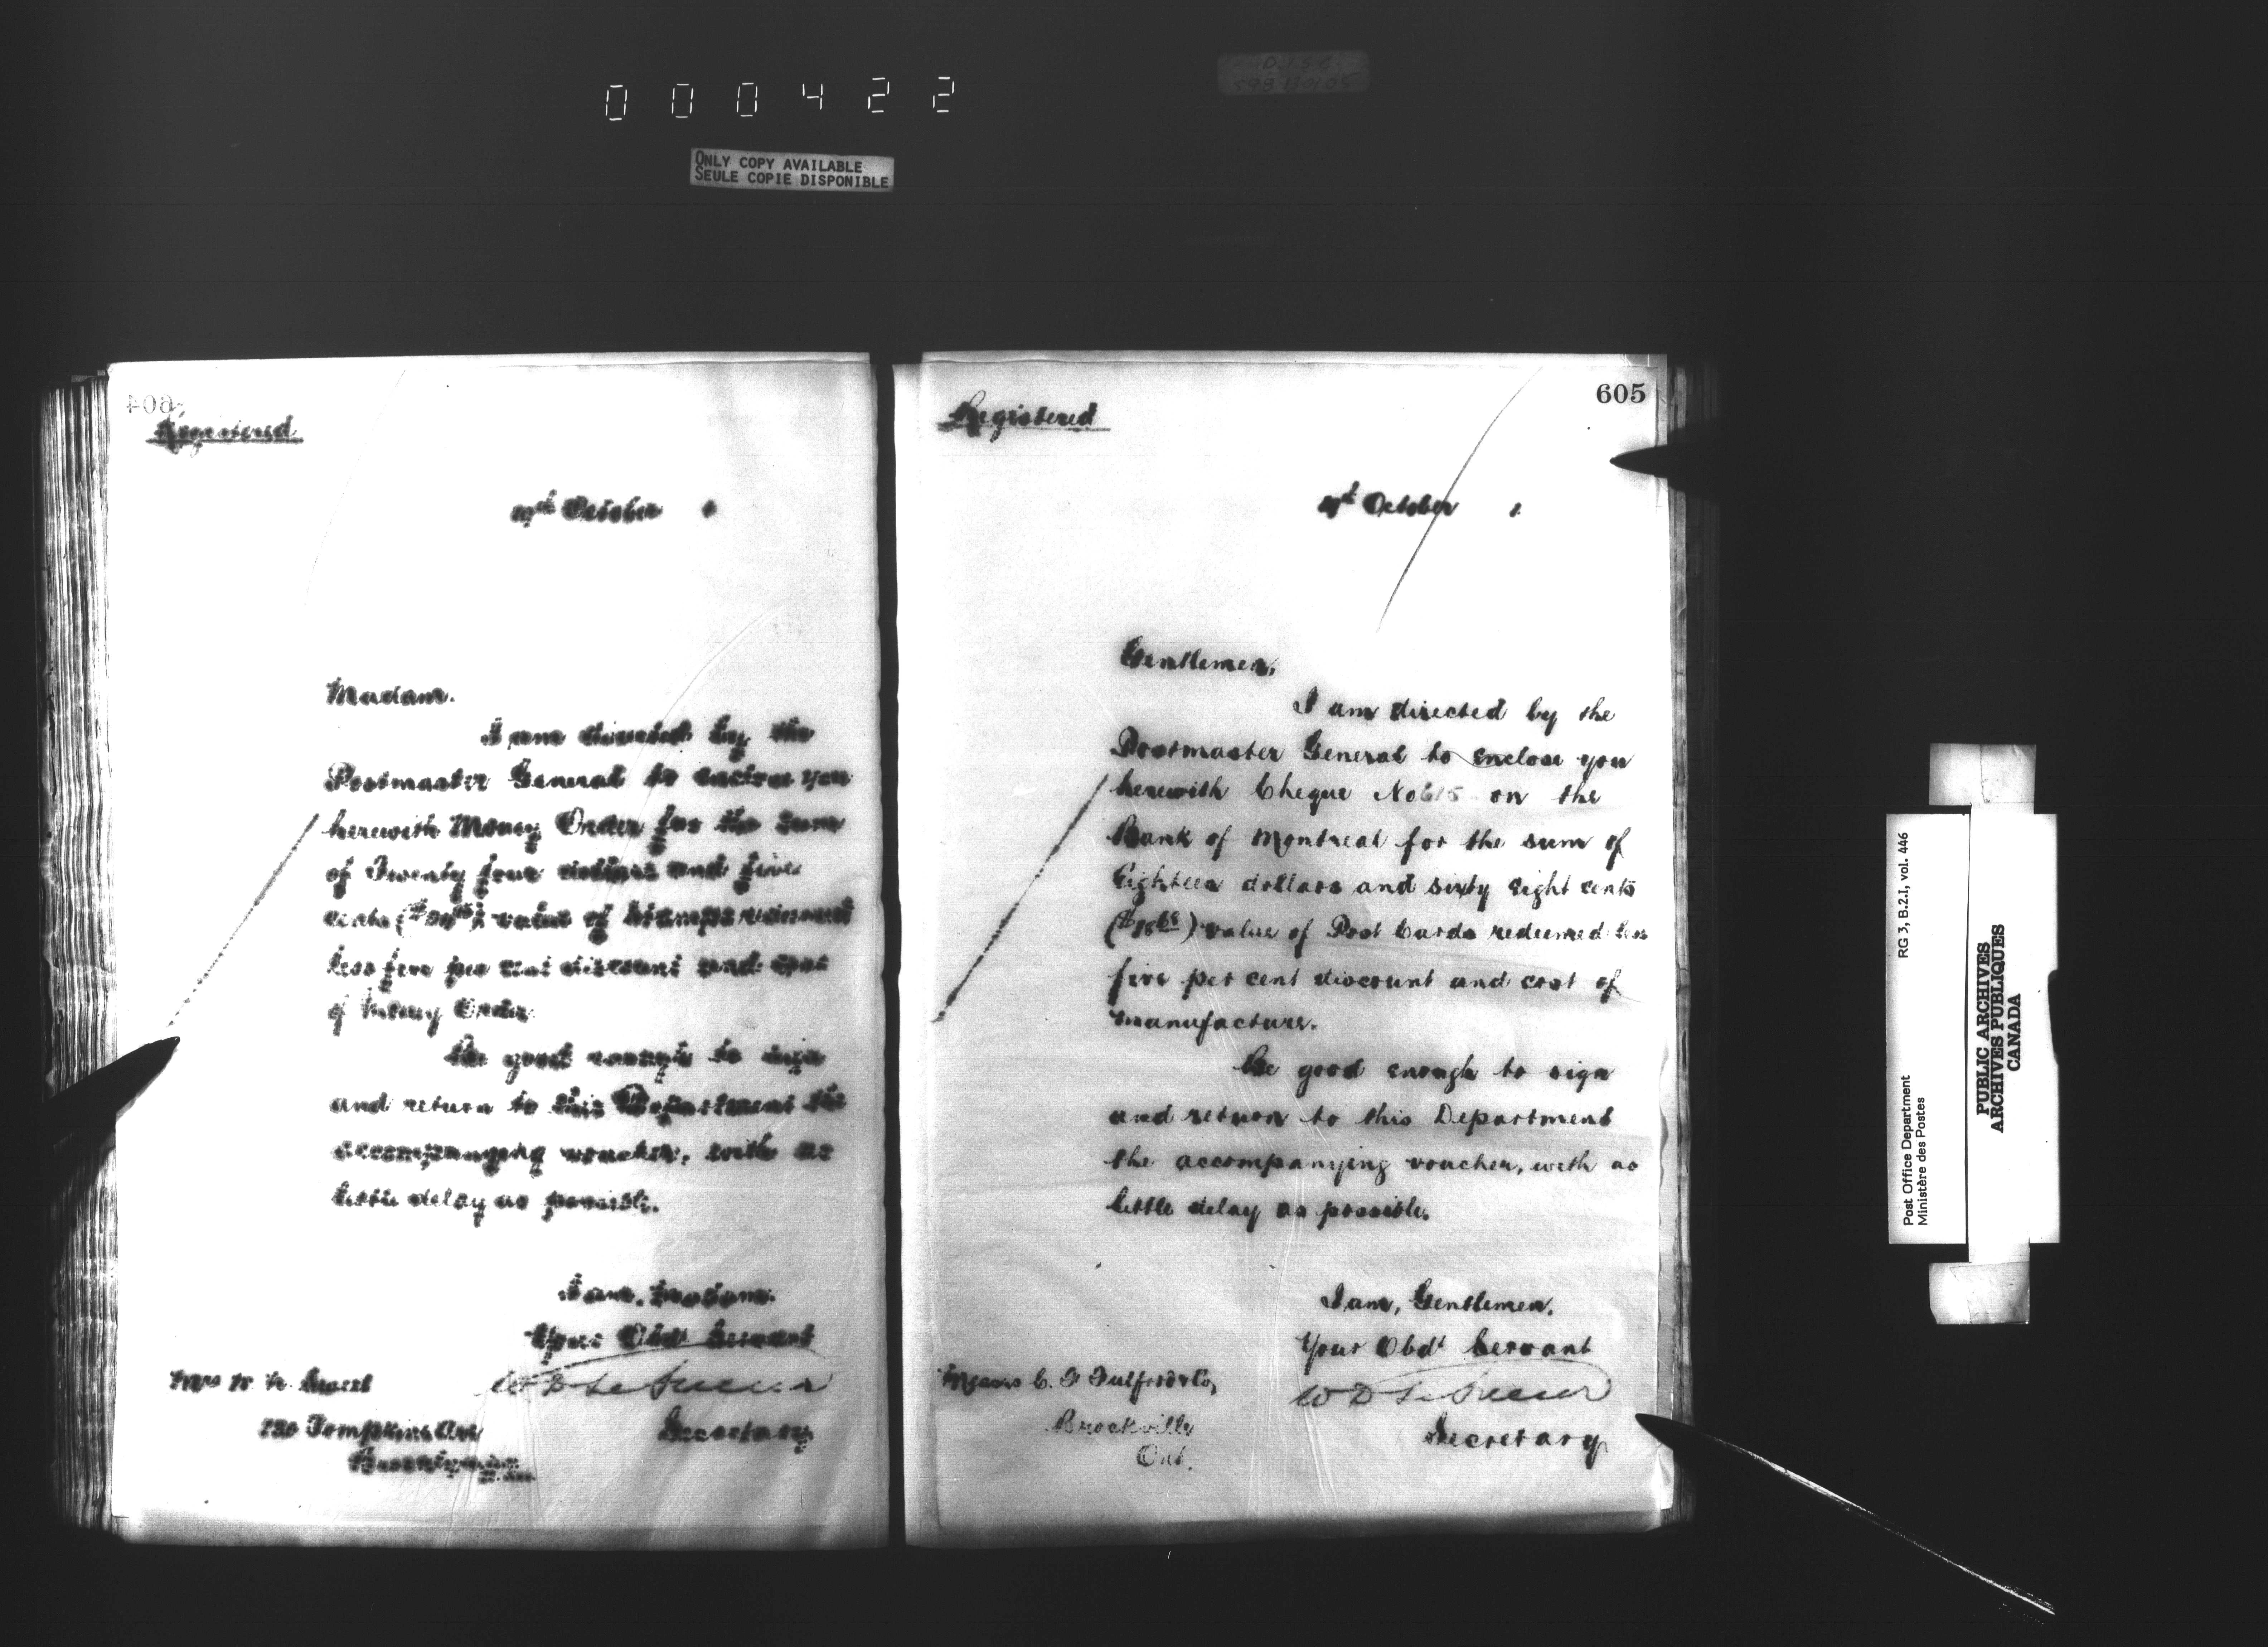 000422
ONLY COPY AVAILABLE
SEULE COPIE DISPONIBLE
604
Registered
October 1
Madam.
I am directed by the
Postmaster General to enclose you
herewith Money Order for the sum
of Twenty four dollars and five
cents value of Stamps redeemed
less five per cent discount and cost
of Money Order
Be good enough to sign
and return to this Department the
accompanying voucher, with as
little delay as possible.
I am, Madam.
Your Obdt Servant
W D LeSueur
Secretary
Mrs
Tompkins Ave
605
Registered
October 1
Gentlemen,
I am directed by the
Postmaster General to enclose you
herewith Cheque No 615 on the
Bank of Montreal for the sum of
Eighteen dollars and sixty eight cents
($18 68) value of Post Cards redeemed less
five per cent discount and cost of
manufacture.
Be good enough to sign
and return to this Department
the accompanying voucher, with as
little delay as possible.
I am, Gentlemen.
Your Obdt Servant
W D LeSueur
Secretary
Messrs C. F Fulford & Co,
Brockville
Ont.
RG 3, B.2.I, vol. 446
Post Office Department
Ministère des Postes
PUBLIC ARCHIVES
ARCHIVES PUBLIQUES
CANADA